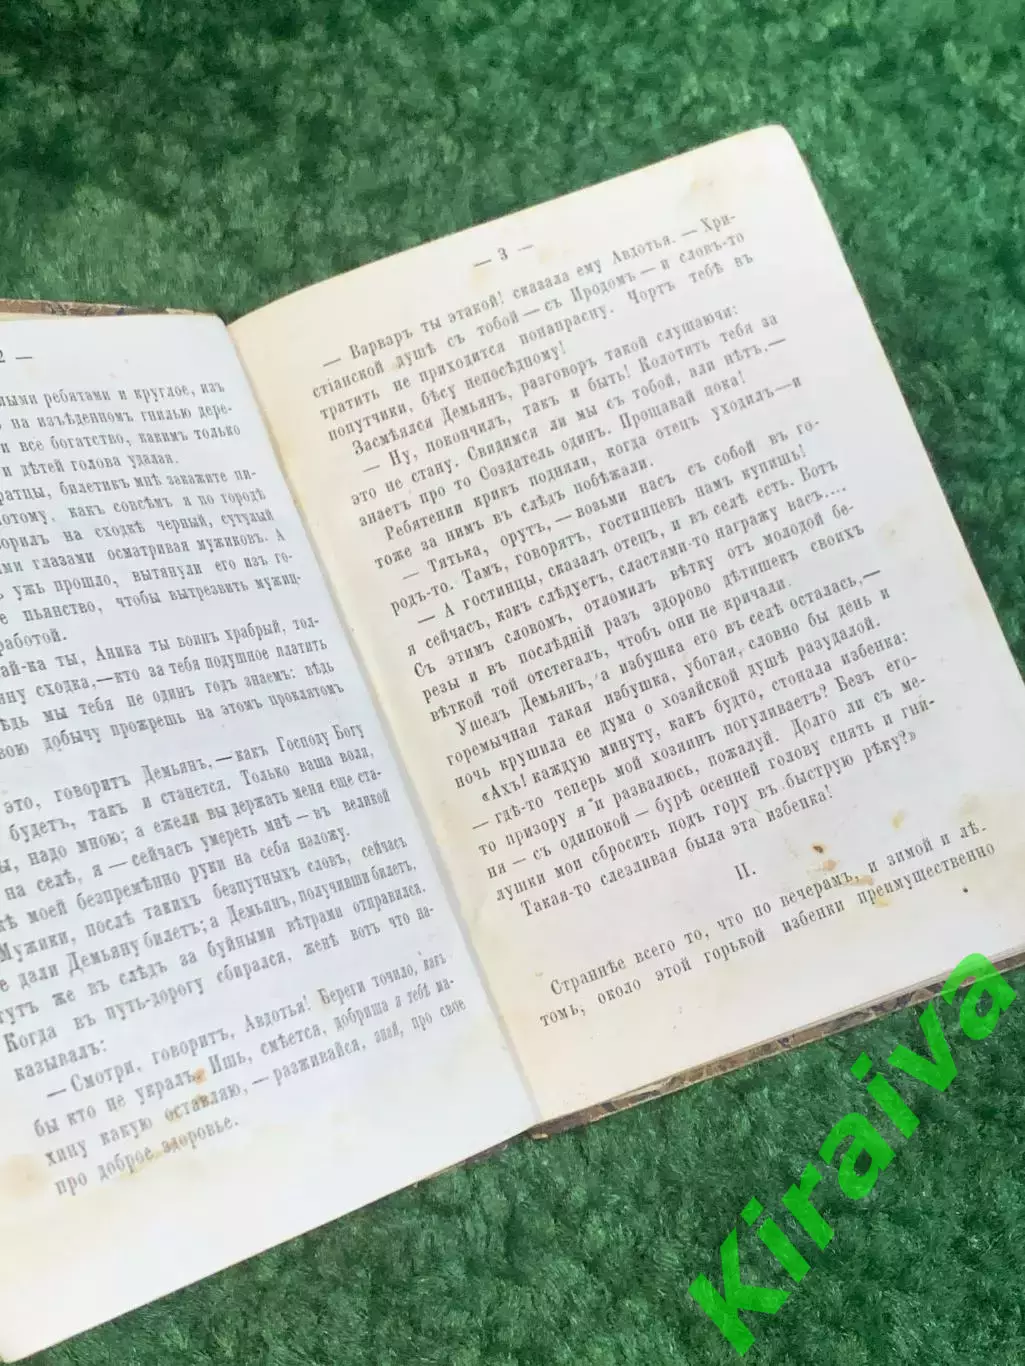 2 —
лыми ребятами и круглое, изъ
на изъѣденномъ гнилью дере-
и все богатство, какимъ только
и дѣтей голова удалая.
ратцы, билетикъ мнѣ закажите пи-
потому, какъ совсѣмъ я по городѣ
орилъ на сходкѣ черный, сутулый
ими глазами осматривая мужиковъ. А
ужь прошло, вытянули его изъ го-
е пьянство, чтобы вытрезвить мужиц-
работой.
ай-ка ты, Аника ты воинъ храбрый, тол-
ну сходка,—кто за тебя подушное платить
ѣдь мы тебя не одинъ годъ знаемъ: вѣдь
вою добычу прожрешь на этомъ проклятомъ
это, говоритъ Демьянъ,—какъ Господу Богу
будетъ, такъ и станется. Только ваша вола,
ы, надо мною; а ежели вы держать меня еще ста-
на селѣ, я —сейчасъ умереть мнѣ — въ великой
кѣ моей безпремѣнно руки на себя наложу.
Мужики, послѣ такихъ безпутныхъ словъ, сейчасъ
е дали Демьяну билетъ; а Демьянъ, получивши билетъ,
тутъ же въ слѣдъ за буйными вѣтрами отправился.
Когда въ путь-дорогу сбирался, женѣ вотъ что на-
казывалъ:
— Смотри, говоритъ, Авдотья! Береги точило, какъ
бы кто не укралъ. Ишь, смѣется, добриша я тебѣ ма-
хину какую оставляю, — разживайся, знай, про свое
про доброе здоровье.
— 3 —
— Варваръ ты этакой! сказала ему Авдотья. — Хри-
стіанской душѣ съ тобой — съ Иродомъ — и словъ-то
тратить не приходится понапрасну. Чортъ тебѣ въ
попутчики, бѣсу непосѣдному!
Засмѣялся Демьянъ, разговоръ такой слушаючи:
— Ну, покончилъ, такъ и быть! Колотить тебя за
это не стану. Свидимся ли мы съ тобой, али нѣтъ,—
знаетъ про то Создатель одинъ. Прощавай пока!
Ребятенки крикъ подняли, когда отецъ уходилъ—и
тоже за нимъ въ слѣдъ побѣжали.
— Тятька, орутъ,—возьми насъ съ собой въ го-
родъ-то. Тамъ, говорятъ, гостинцевъ намъ купишь!
— А гостинцы, сказалъ отецъ, и въ селѣ есть. Вотъ
я сейчасъ, какъ слѣдуетъ, сластями-то награжу васъ....
Съ этимъ словомъ, отломилъ вѣтку отъ молодой бе-
резы и въ послѣдній разъ здорово дѣтишекъ своихъ
вѣткой той отстегалъ, чтобъ они не кричали.
Ушелъ Демьянъ, а избушка его въ селѣ осталась,—
горемычная такая избушка, убогая, словно бы день и
ночь крушила ее дума о хозяйской душѣ разудалой.
«Ахъ! каждую минуту, какъ будто, стонала избенка:
— гдѣ-то теперь мой хозяинъ погуливаетъ? Безъ его-
то призору я и развалюсь, пожалуй. Долго ли съ ме-
ня — съ одинокой — бурѣ осенней голову снять и гни-
лушки мои сбросить подъ гору въ быструю рѣку?»
Такая-то слезливая была эта избенка!
II.
Страннѣе всего то, что по вечерамъ, и зимой и лѣ-
томъ, около этой горькой избенки преимущественно
Kiraiva